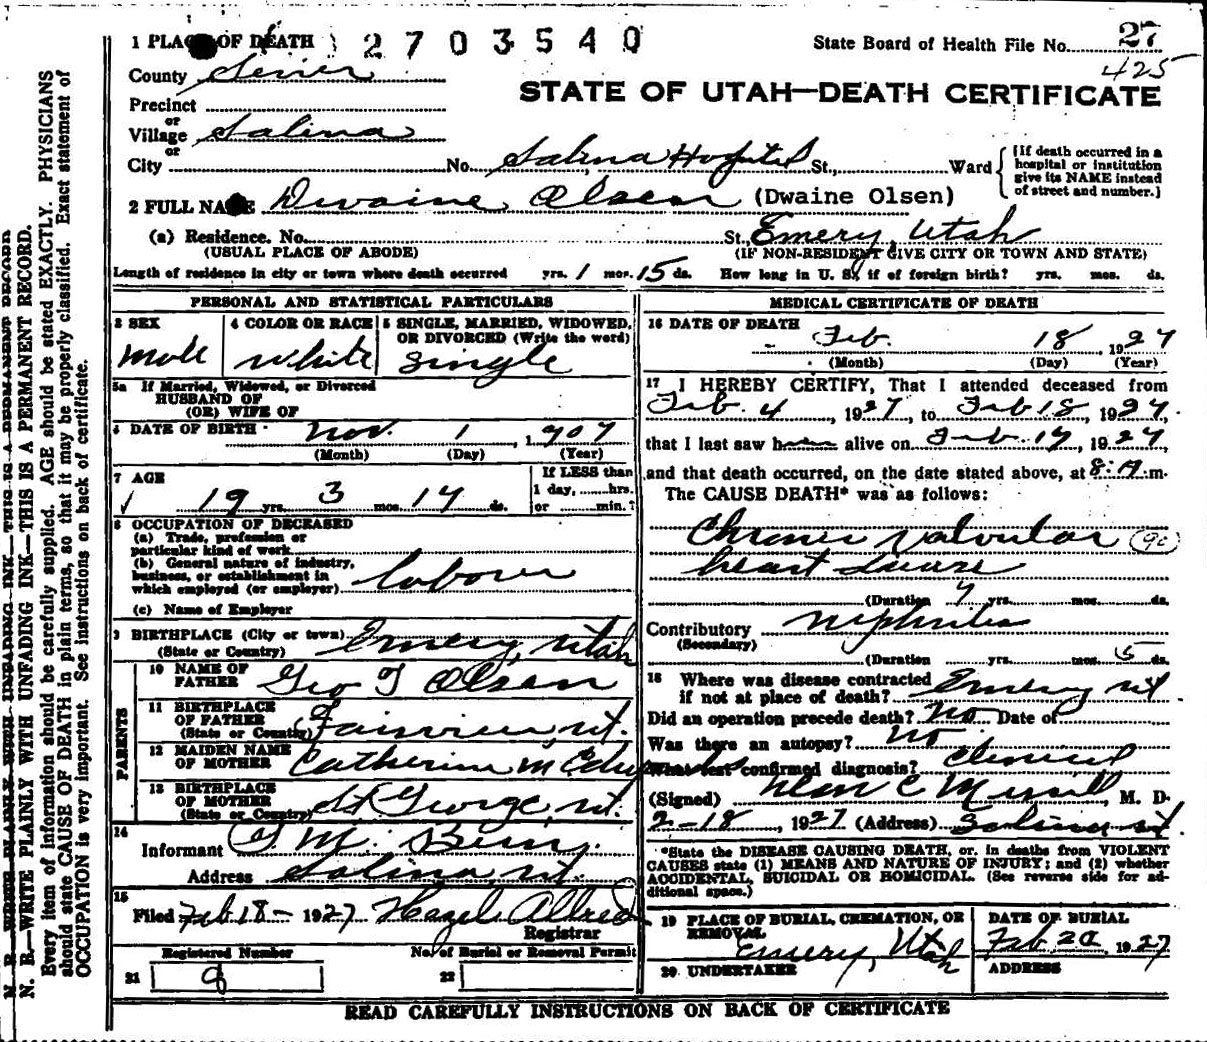 1 PLACE OF DEATH 2 7 0 3 5 4 0
State Board of Health File No. 27
425
County Sevier
STATE OF UTAH—DEATH CERTIFICATE
Precinct
or
Village Salina
or
City No. Salina Hospital St., Ward
{If death occurred in a
hospital or institution
give its NAME instead
of street and number.}
2 FULL NAME Dwaine Olsen (Dwaine Olsen)
(a) Residence. No. St., Emery, Utah
(USUAL PLACE OF ABODE) (IF NON-RESIDENT GIVE CITY OR TOWN AND STATE)
Length of residence in city or town where death occurred yrs. 1 mos. 15 ds. How long in U. S., if of foreign birth? yrs. mos. ds.
PERSONAL AND STATISTICAL PARTICULARS
3 SEX 4 COLOR OR RACE 5 SINGLE, MARRIED, WIDOWED,
OR DIVORCED (Write the word)
Male White Single
5a If Married, Widowed, or Divorced
HUSBAND OF
(OR) WIFE OF
6 DATE OF BIRTH Nov. 1, 1907
(Month) (Day) (Year)
7 AGE If LESS than
1 day, hrs.
19 yrs. 3 mos. 17 ds. or min.?
8 OCCUPATION OF DECEASED
(a) Trade, profession or
particular kind of work
(b) General nature of industry,
business, or establishment in
which employed (or employer) labour
(c) Name of Employer
9 BIRTHPLACE (City or town) Emery, Utah
(State or Country)
PARENTS
10 NAME OF
FATHER Geo T Olsen
11 BIRTHPLACE
OF FATHER
(State or Country) Fairview, Ut.
12 MAIDEN NAME
OF MOTHER Catherine M Edwards
13 BIRTHPLACE
OF MOTHER
(State or Country) St George, Ut.
14
Informant
Address Salina, Ut.
15
Filed Feb 18 - 1927 Hazel Allred
Registrar
Registered Number No. of Burial or Removal Permit
21 9 22
MEDICAL CERTIFICATE OF DEATH
16 DATE OF DEATH
Feb. 18 1927
(Month) (Day) (Year)
17 I HEREBY CERTIFY, That I attended deceased from
Feb. 4, 1927, to Feb 18, 1927,
that I last saw h alive on Feb. 17, 1927
and that death occurred, on the date stated above, at 8: A.m.
The CAUSE DEATH* was as follows:
Chronic valvular (90)
heart disease
(Duration 7 yrs. mos. ds.
Contributory Nephritis
(Secondary)
(Duration yrs. mos. 5 ds.
18 Where was disease contracted
if not at place of death? Emery Ut
Did an operation precede death? No Date of
Was there an autopsy? No
What test confirmed diagnosis? Clinical
(Signed) C Merrill, M. D.
2-18, 1927 (Address) Salina Ut
*State the DISEASE CAUSING DEATH, or, in deaths from VIOLENT
CAUSES state (1) MEANS AND NATURE OF INJURY; and (2) whether
ACCIDENTAL, SUICIDAL OR HOMICIDAL. (See reverse side for ad-
ditional space.)
19 PLACE OF BURIAL, CREMATION, OR
REMOVAL Emery, Utah
DATE OF BURIAL
Feb 20 1927
20 UNDERTAKER ADDRESS
READ CAREFULLY INSTRUCTIONS ON BACK OF CERTIFICATE
N. B.—WRITE PLAINLY WITH UNFADING INK—THIS IS A PERMANENT RECORD
N. B.—WRITE PLAINLY WITH UNFADING INK—THIS IS A PERMANENT RECORD.
Every item of information should be carefully supplied. AGE should be stated EXACTLY. PHYSICIANS
should state CAUSE OF DEATH in plain terms, so that it may be properly classified. Exact statement of
OCCUPATION is very important. See instructions on back of certificate.